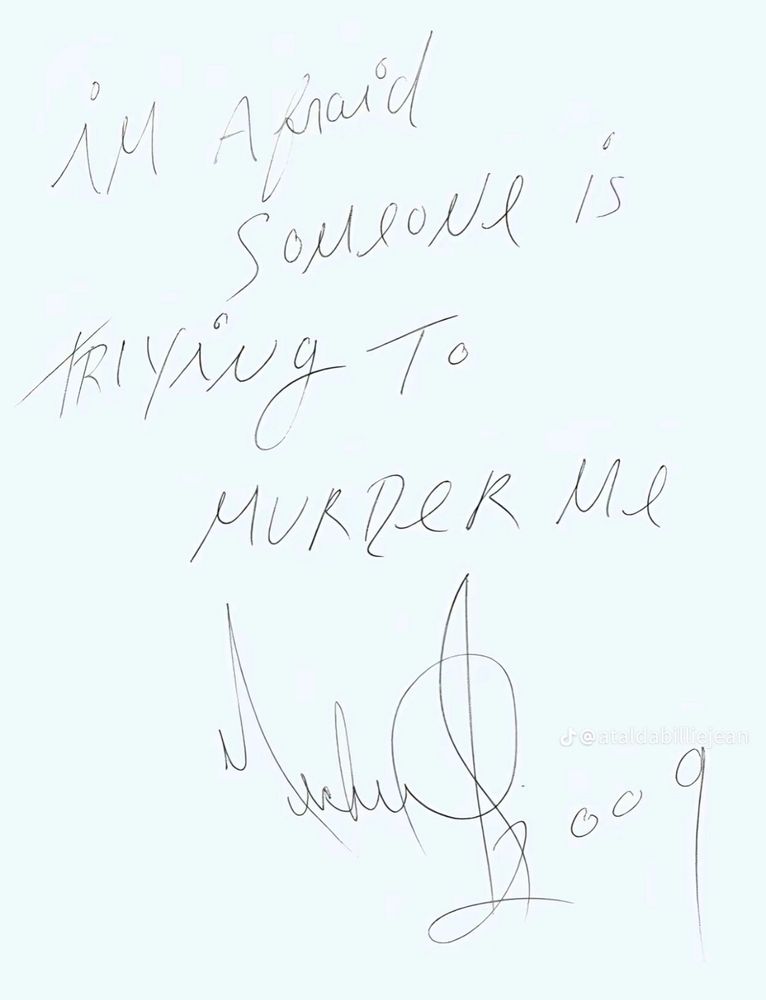 iM Afraid
SOMeONe is
TRiYiNg To
MURDeR Me
@ataldabilliejean
2009